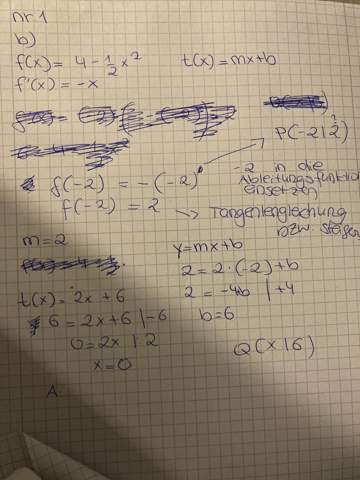 nr 1
b)
f(x) = 4 - 1/2 x² t(x) = mx+b
f'(x) = -x
P(-2|2)
-2 in die
Ableitungsfunktion
einsetzen
f(-2) = -(-2)
f(-2) = 2 -> Tangentengleichung
bzw.
m = 2
y = mx+b
2 = 2·(-2)+b
t(x) = 2x + 6
2 = -4+b |+4
6 = 2x+6 |-6
b = 6
0 = 2x | 2
x = 0
Q(x|6)
A